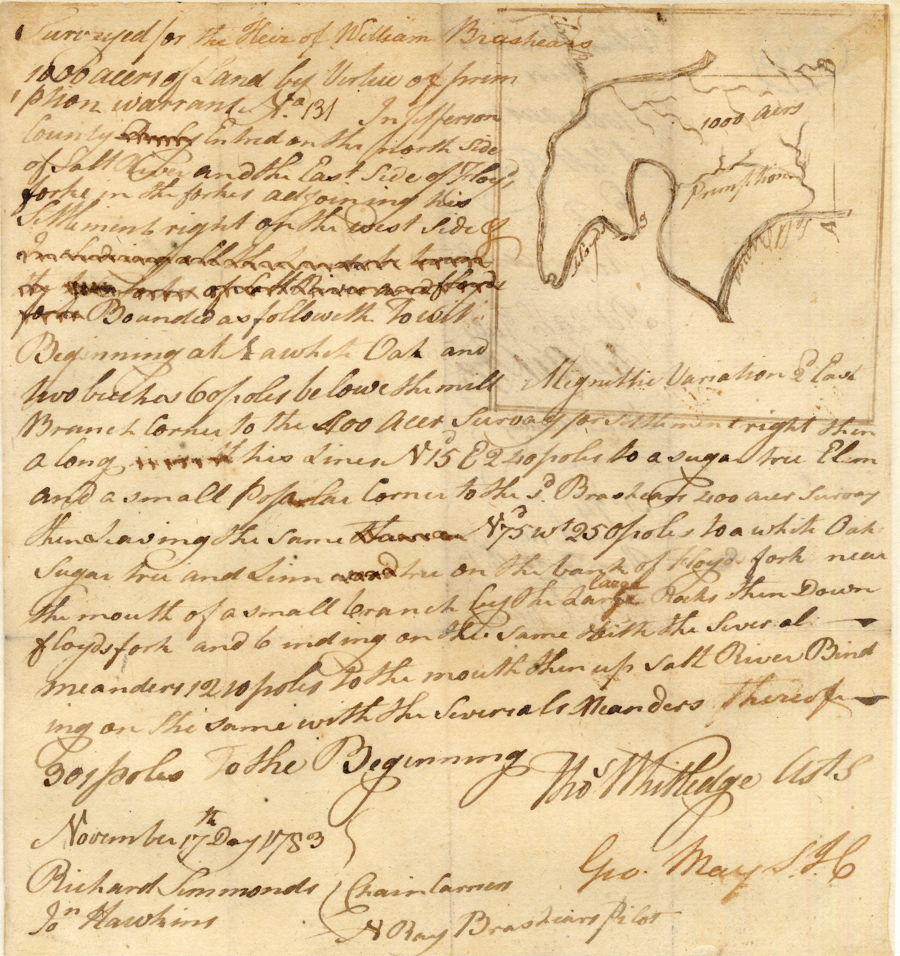 Surveyed for the Heir of William Brashears
1000 acers of Land by Virtue of prem
ption warrant No 131 In Jefferson
County Entred on the north Side
of Salt River and the East Side of Floyds
forke in the forkes adjoining his
Settlement right on the west Side &
Including all the
of Salt River and
Bounded as followeth To wit
Beginning at a white Oak and
two beches 60 poles below the mill
Branch Corner to the 400 Acer Survay for Settlement right then
along his Lines N 15d E 240 poles to a sugar tree Elm
and a small Poplar Corner to the sd. Brashears 400 acer Survay
then Leaving the same N 75d wt 250 poles to a white Oak
Sugar tree and Linn tree on the bank of Floyds fork near
the mouth of a small branch by the Large large Rocks then Down
floyds fork and binding on the same with the Several
meanders 1210 poles to the mouth then up Salt River Bind
ing on the same with the Severals Meanders Thereof
301 poles To the Beginning
Thos Whitledge Asts
November 17th Day 1783
Geo. May S.J.C
Richard Simmonds
Jon Hawkins
Chain Carriers
N Ray Brashears Pilot
1000 Acers
Premption
B
A
Floyds
Salt River
Magnittic Variation 2d East